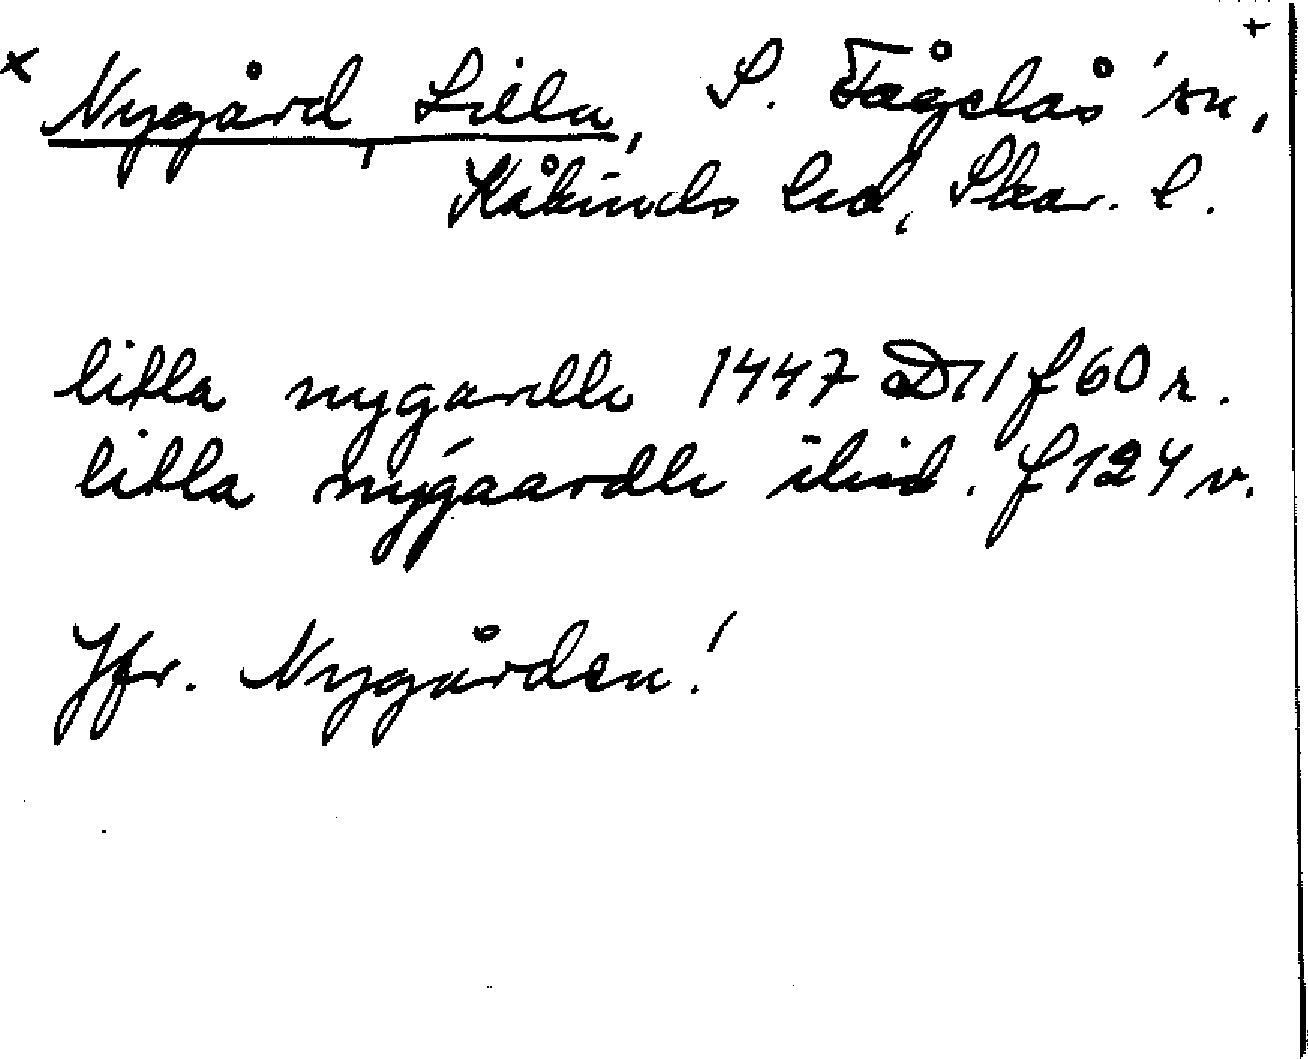 x Nygård, Lilla, S. Fågelås sn, +
Kåkinds hd, Skar. l.
litla nygardh 1447 D 11 f 60 r.
litla nygaardh ibid. f 124 v.
Jfr. Nygården!